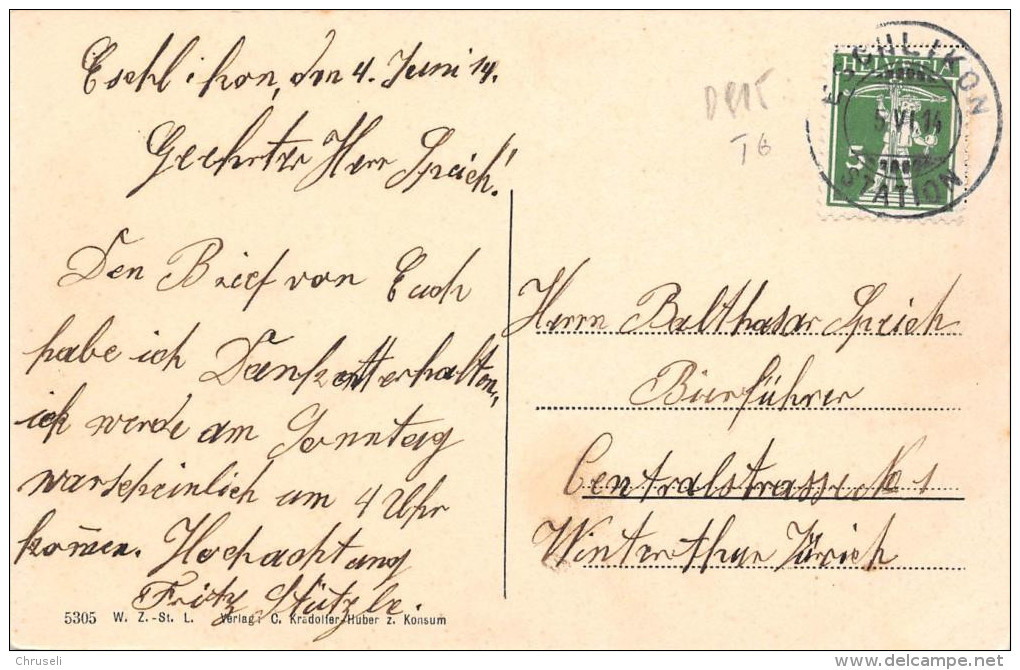 Eschlikon, den 4. Juni 14.
Geehrter Herr Speich!
Den Brief von Euch
habe ich Dankentterhalten,
ich werde am Sonntag
warscheinlich um 4 Uhr
kom̄en. Hochachtung
Fritz Stützle.
5305 W. Z.-St. L. Verlag: C. Kradolfer-Huber z. Konsum
DEPT
T6
ESCHLIKON
HELVETIA
5.VI.14
5
STATION
Herrn Balthasar Speich
Bierführer
Centralstrasse No 1
Winterthur Zürich
Chruseli
delcampe.net